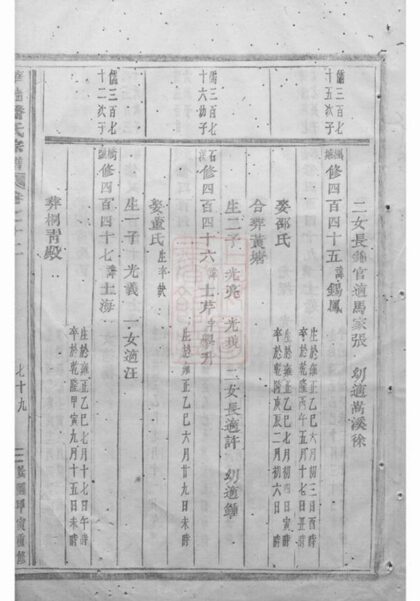 二女長適官適馬家張 幼適嵩溪徐
儒三百七十五次子
修四百四十五諱錫鳳
生於雍正乙巳六月初三日酉時
卒於乾隆丙午五月十七日丑時
娶邵氏
生於雍正乙巳七月初四日寅時
卒於乾隆庚辰二月初六日 時
合葬黃塘
生二子 光亮 光 二女長適許 幼適鍾
儒三百七十六幼子
修四百四十六諱士芹字學升
生於雍正乙巳六月廿九日未時
娶童氏
生卒缺
生一子 光義 一女適汪
儒三百七十二次子
修四百四十七諱士海
生於雍正乙巳七月十七日午時
卒於乾隆甲寅九月十五日未時
葬桐青殿
氏宗譜
七十九
民國甲寅重修